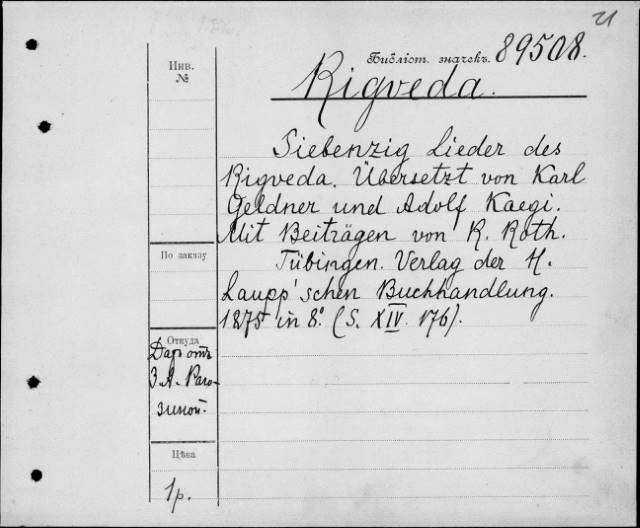 21
Библіот. значекъ. 89508.
Rigveda.
Инв.
№
Siebenzig Lieder des
Rigveda. Übersetzt von Karl
Geldner und Adolf Kaegi.
Mit Beiträgen von R. Roth.
Tübingen. Verlag der H.
Laupp'schen Buchhandlung.
1875 in 8º. (S. XIV. 176).
По заказу
Откуда
Даръ отъ
З. А. Раго-
зиной.
Цѣна
1 р.